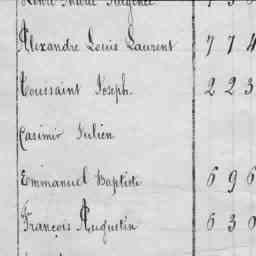 Alexandre Louis Laurent 7 7 4
Toussaint Joseph. 2 2 3
Casimir Julien
Emmanuel Baptiste 6 9 6
François Augustin 6 3 0